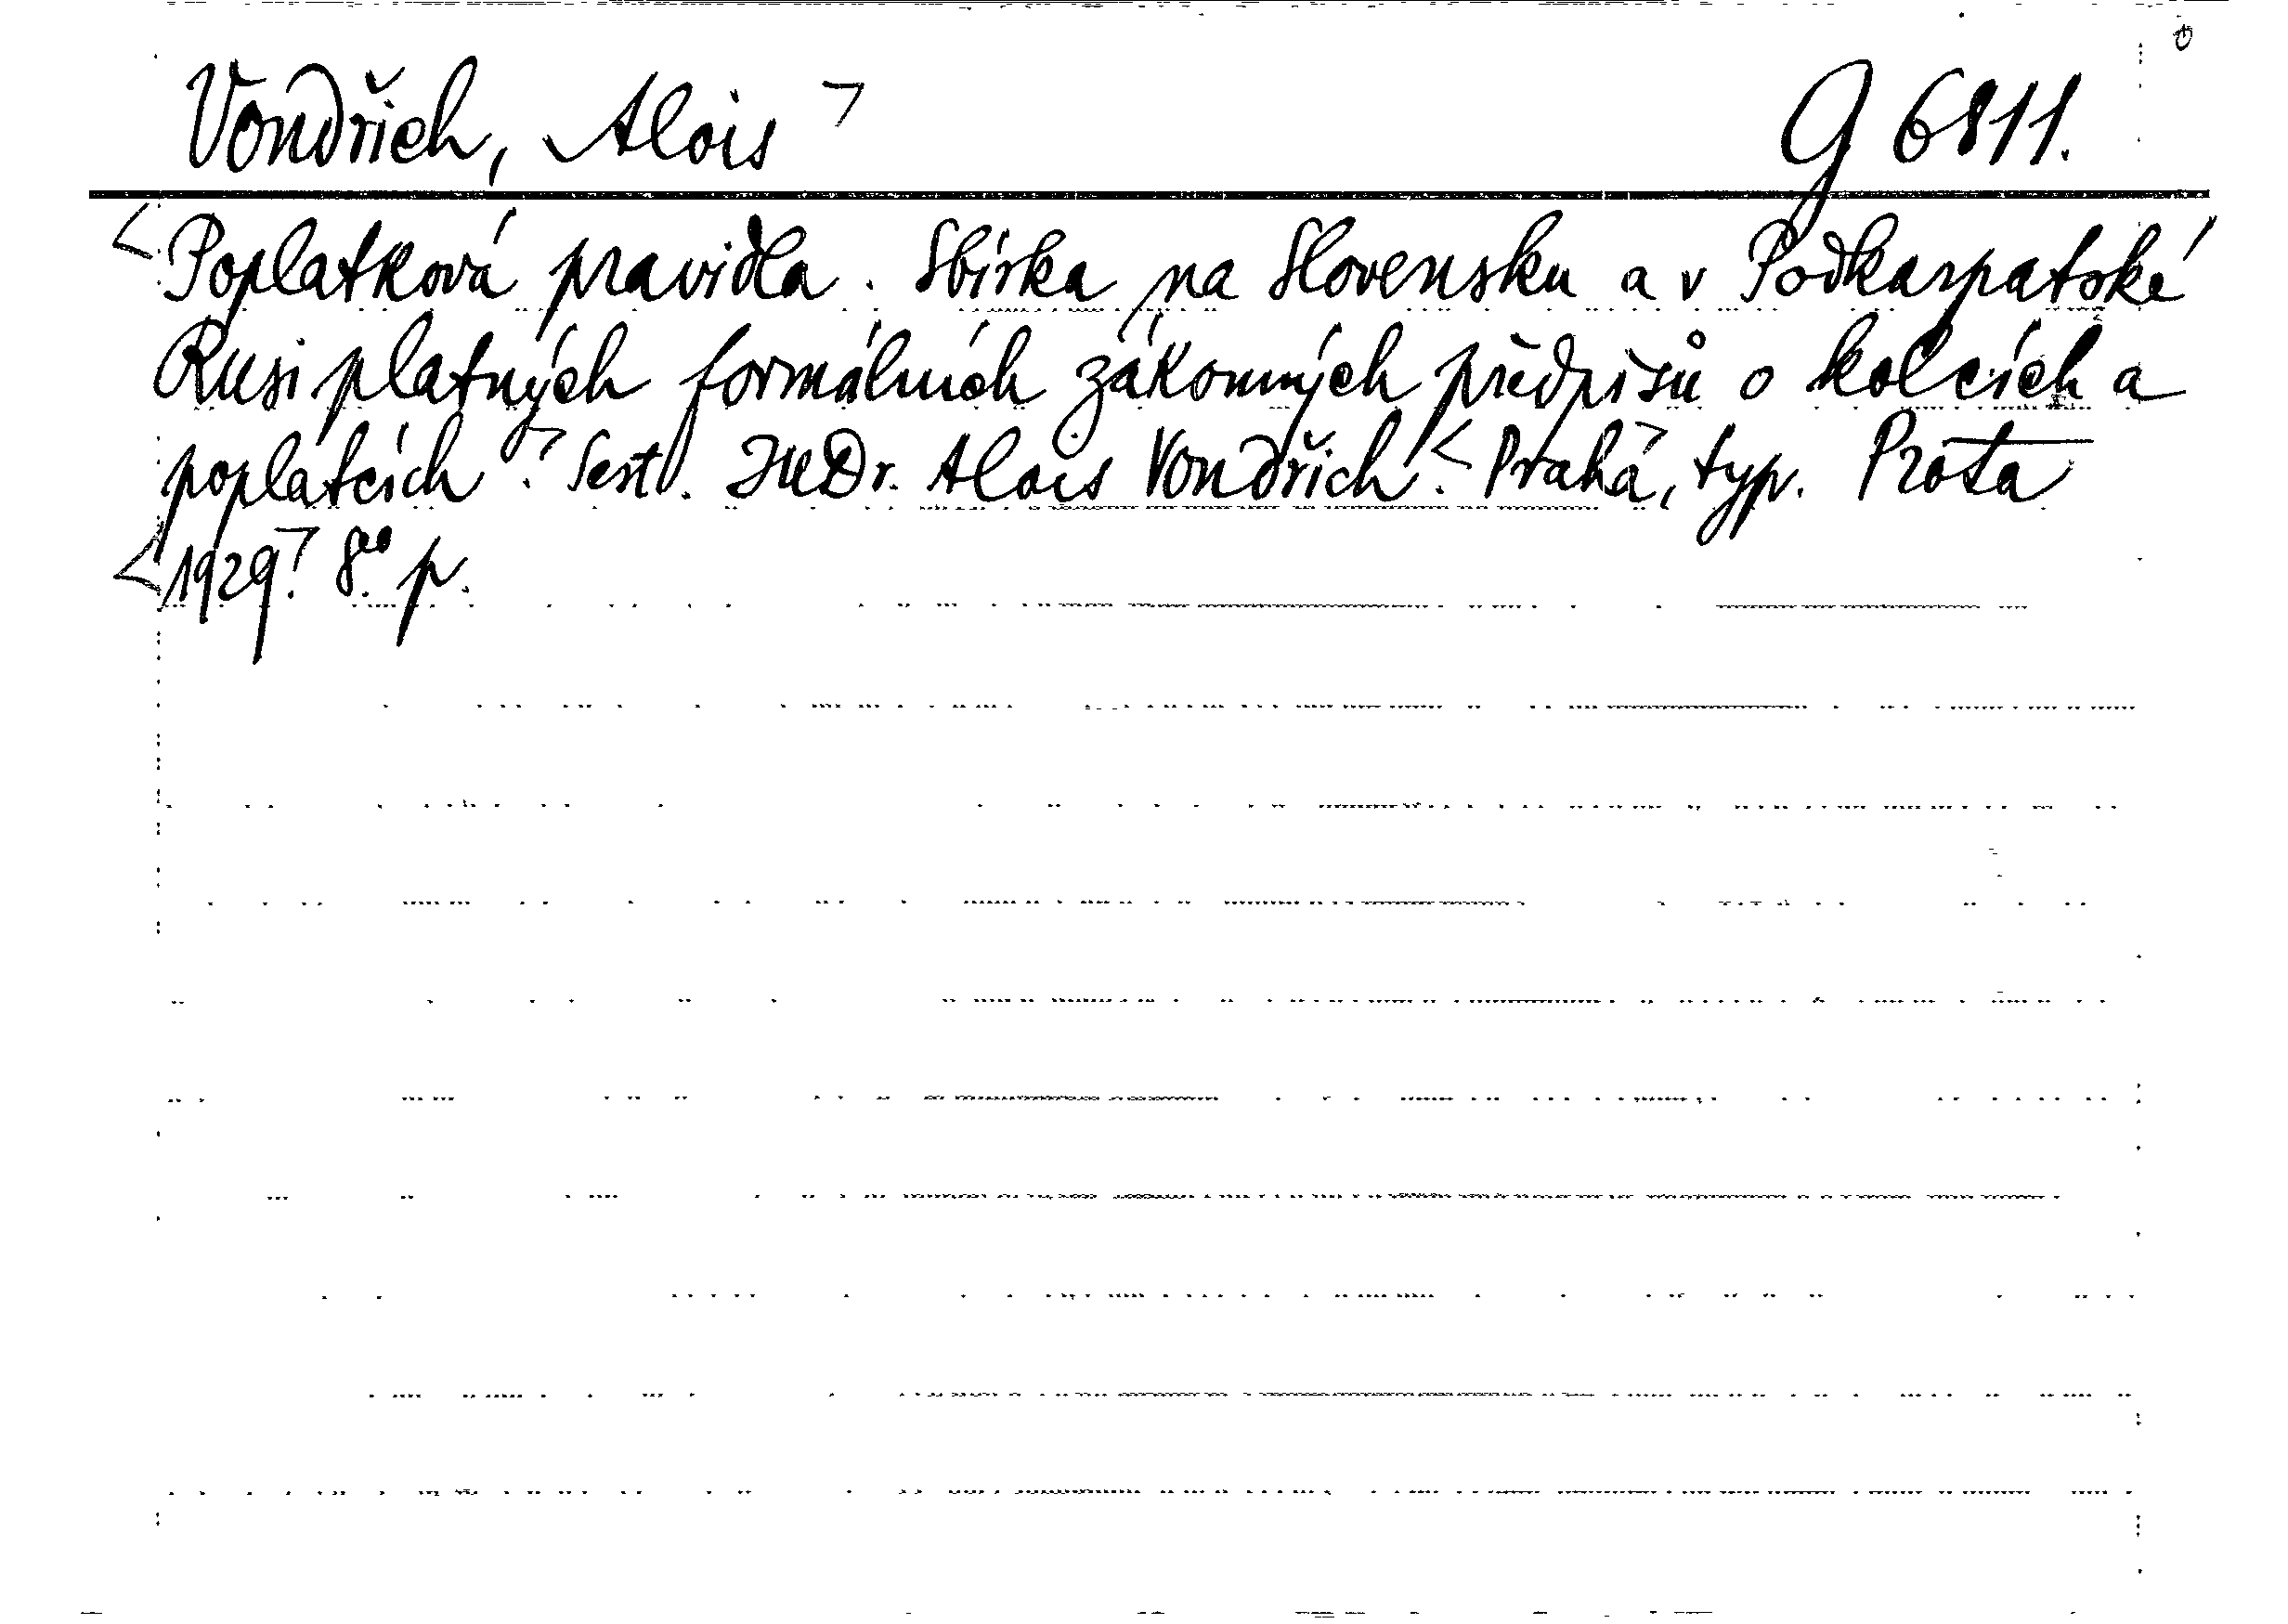 Vondřich, Alois G 6811.
Poplatková pravidla. Sbírka na Slovensku a v Podkarpatské
Rusi platných formálních zákonných předpisů o kolcích a
poplatcích. Sest. JUDr. Alois Vondřich. Praha, typ. Prota
1929. 8° p.